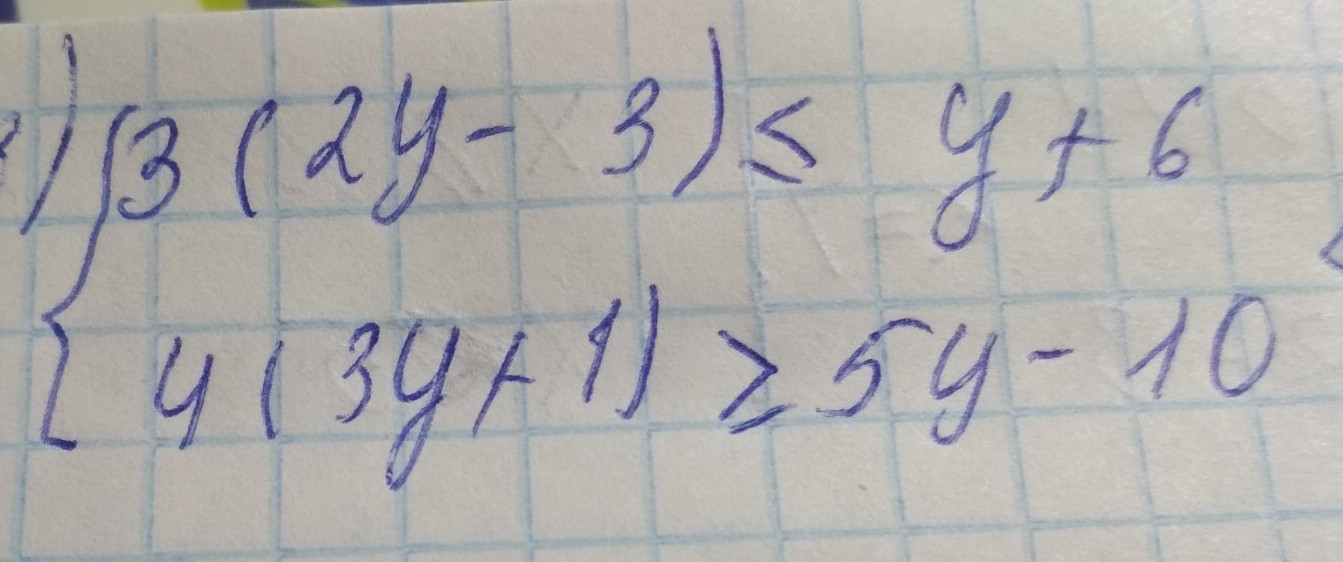 ) { 3 ( 2y - 3 ) ≤ y + 6
4 ( 3y + 1 ) ≥ 5y - 10